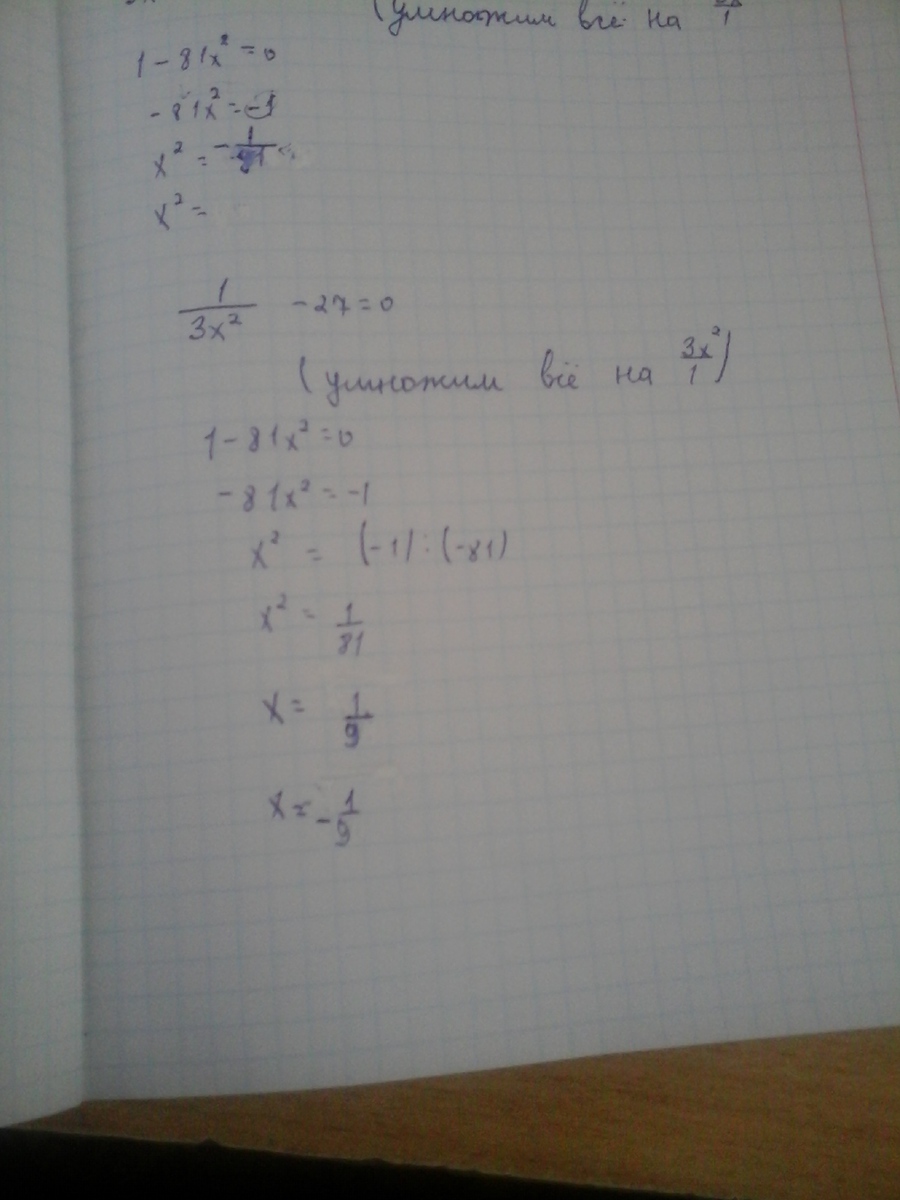 (умножим всё на
1 - 81x² = 0
- 81x² = -1
x² = - 1/81
x² =
1/3x² - 27 = 0
(умножим всё на 3x²/1)
1 - 81x² = 0
- 81x² = -1
x² = (-1) : (-81)
x² = 1/81
x = 1/9
x = - 1/9